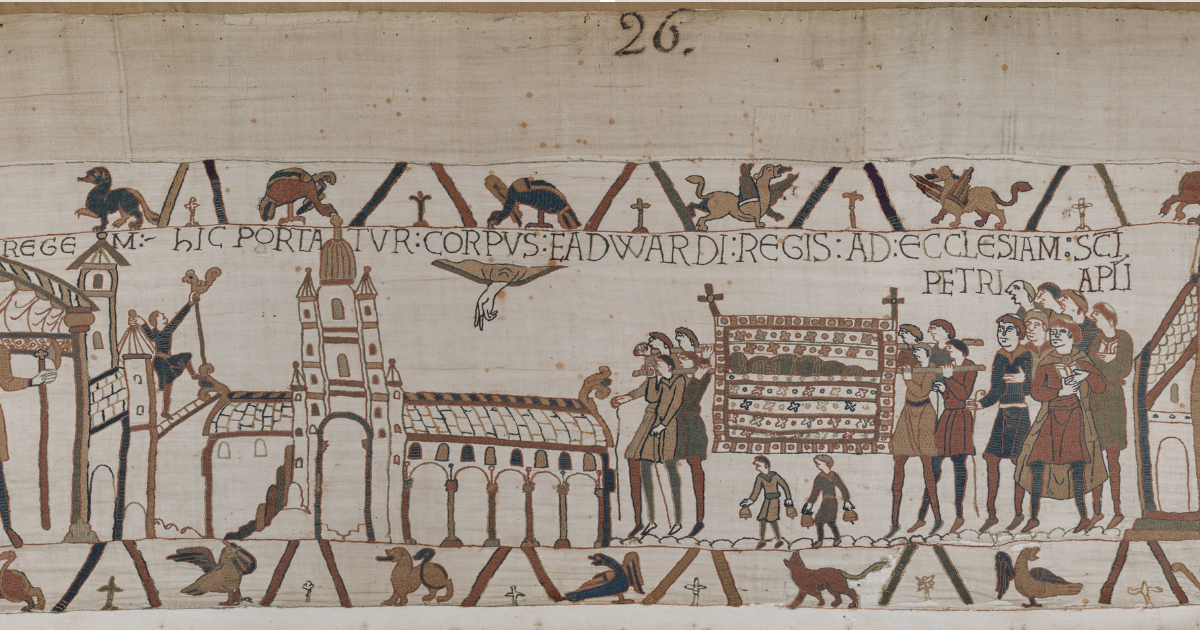 26.
REGEM:- hIC PORTATVR:CORPVS:EADWARDI:REGIS:AD:ECCLESIAM:SCI
PETRI APLI